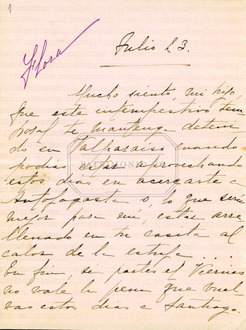 1
Flora
Julio 23.
Mucho siento, mi hijo,
que este intempestivo tem
poral te mantenga deteni
do en Talcahuano cuando
podia aprovechando
estos dias en acercarte a
Antofagasta o, lo que seria
mejor para mi, estar arre
llenado en tu casita al
calor de la estufa ...
En fin, si partes el Viernes
no vale la pena que vuel
vas estos dias a Santiago.